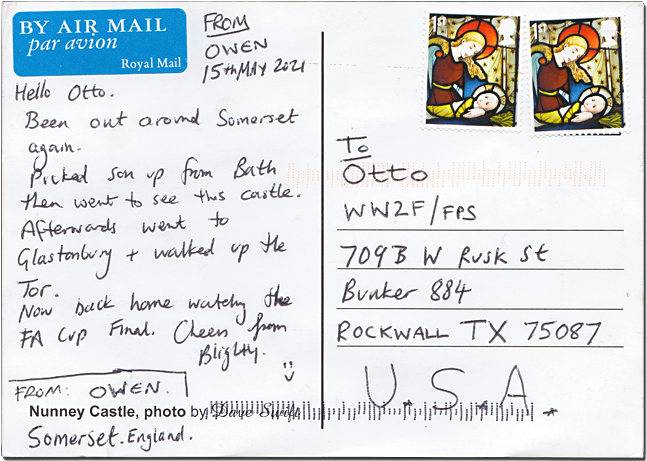 BY AIR MAIL
par avion
Royal Mail
FROM
OWEN
15th MAY 2021
Hello Otto.
Been out around Somerset
again.
Picked son up from Bath
then went to see this castle.
Afterwards went to
Glastonbury + walked up the
Tor.
Now back home watchg the
FA Cup Final. Cheers from
Blighty.
FROM: OWEN.
Nunney Castle, photo by Dave Swift
Somerset. England.
1st
1st
To
Otto
WW2F/FPS
709B W Rusk St
Bunker 884
ROCKWALL TX 75087
U.S.A.